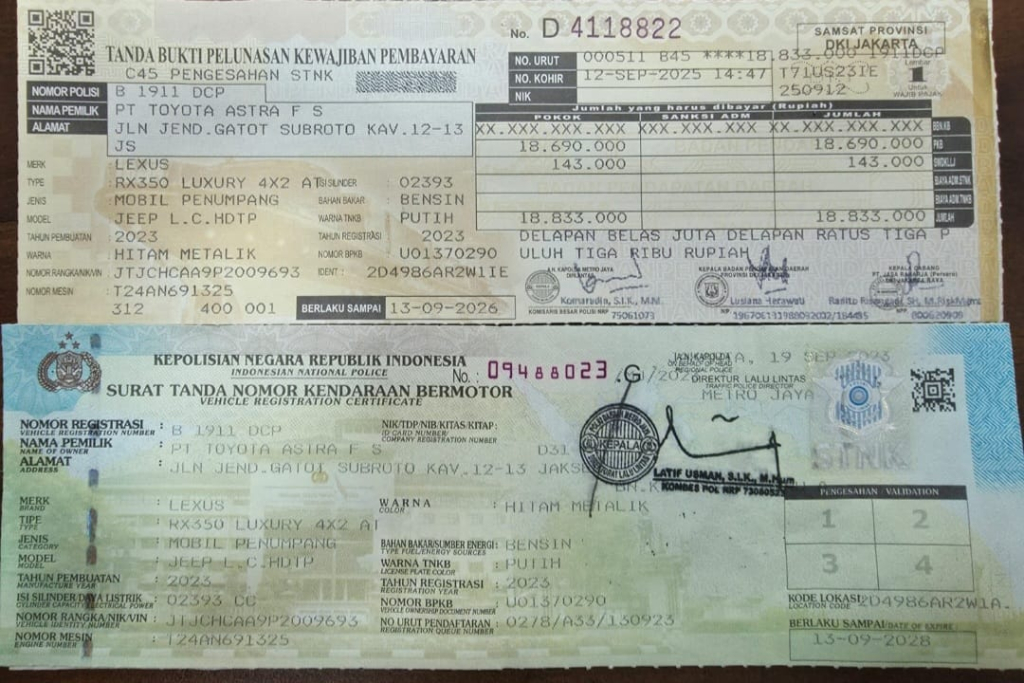 No. D 4118822
SAMSAT PROVINSI
DKI JAKARTA
TANDA BUKTI PELUNASAN KEWAJIBAN PEMBAYARAN
C45 PENGESAHAN STNK
NO. URUT 000511 B45 ****18.833.000 1911DCP
NO. KOHIR 12-SEP-2025 14:47 T71US23IE
NIK 250912
Lembar 1
NOMOR POLISI B 1911 DCP
NAMA PEMILIK PT TOYOTA ASTRA F S
ALAMAT JLN JEND.GATOT SUBROTO KAV.12-13
JS
Jumlah yang harus dibayar (Rupiah)
POKOK SANKSI ADM JUMLAH
XX.XXX.XXX.XXX XX.XXX.XXX.XXX XX.XXX.XXX.XXX BBN KB
18.690.000 18.690.000 PKB
143.000 143.000 SWDKLLJ
BIAYA ADM STNK
BIAYA ADM TNKB
18.833.000 18.833.000 JUMLAH
DELAPAN BELAS JUTA DELAPAN RATUS TIGA P
ULUH TIGA RIBU RUPIAH
MERK : LEXUS
TYPE : RX350 LUXURY 4X2 AT ISI SILINDER : 02393
JENIS : MOBIL PENUMPANG BAHAN BAKAR : BENSIN
MODEL : JEEP L.C.HDTP WARNA TNKB : PUTIH
TAHUN PEMBUATAN : 2023 TAHUN REGISTRASI : 2023
WARNA : HITAM METALIK NOMOR BPKB : U01370290
NOMOR RANGKA/NIK/VIN : JTJCHCAA9P2009693 IDENT : 2D4986AR2W1IE
NOMOR MESIN : T24AN691325
312 400 001 BERLAKU SAMPAI 13-09-2026
Komarudin, S.I.K., M.M
KOMISARIS BESAR POLISI NRP 75061073
Lusiana Herawati
KEPOLISIAN NEGARA REPUBLIK INDONESIA
INDONESIAN NATIONAL POLICE
No. : 09488023 .G
SURAT TANDA NOMOR KENDARAAN BERMOTOR
VEHICLE REGISTRATION CERTIFICATE
DIREKTUR LALU LINTAS
TRAFFIC POLICE DIRECTOR
METRO JAYA
KEPALA
LATIF USMAN, S.I.K., M.Hum
NOMOR REGISTRASI : B 1911 DCP
VEHICLE REGISTRATION NUMBER
NIK/TDP/NIB/KITAS/KITAP :
ID CARD NUMBER/
COMPANY REGISTRATION NUMBER
NAMA PEMILIK : PT TOYOTA ASTRA F S
NAME OF OWNER
ALAMAT : JLN JEND.GATOT SUBROTO KAV.12-13 JAKSEL
ADDRESS
MERK : LEXUS
BRAND
WARNA : HITAM METALIK
COLOR
TIPE : RX350 LUXURY 4X2 AT
TYPE
JENIS : MOBIL PENUMPANG
CATEGORY
BAHAN BAKAR/SUMBER ENERGI : BENSIN
TYPE FUEL/ENERGY SOURCES
MODEL : JEEP L.C.HDTP
MODEL
WARNA TNKB : PUTIH
LICENSE PLATE COLOR
TAHUN PEMBUATAN : 2023
MANUFACTURE YEAR
TAHUN REGISTRASI : 2023
REGISTRATION YEAR
ISI SILINDER/DAYA LISTRIK : 02393 CC
CYLINDER CAPACITY/ELECTRICAL POWER
NOMOR BPKB : U01370290
VEHICLE OWNERSHIP DOCUMENT NUMBER
NOMOR RANGKA/NIK/VIN : JTJCHCAA9P2009693
VEHICLE IDENTITY NUMBER
NO URUT PENDAFTARAN : 0278/A33/130923
REGISTRATION QUEUE NUMBER
NOMOR MESIN : T24AN691325
ENGINE NUMBER
PENGESAHAN / VALIDATION
1 2
3 4
KODE LOKASI : 2D4986AR2W1A.
LOCATION CODE
BERLAKU SAMPAI/DATE OF EXPIRE :
13-09-2028